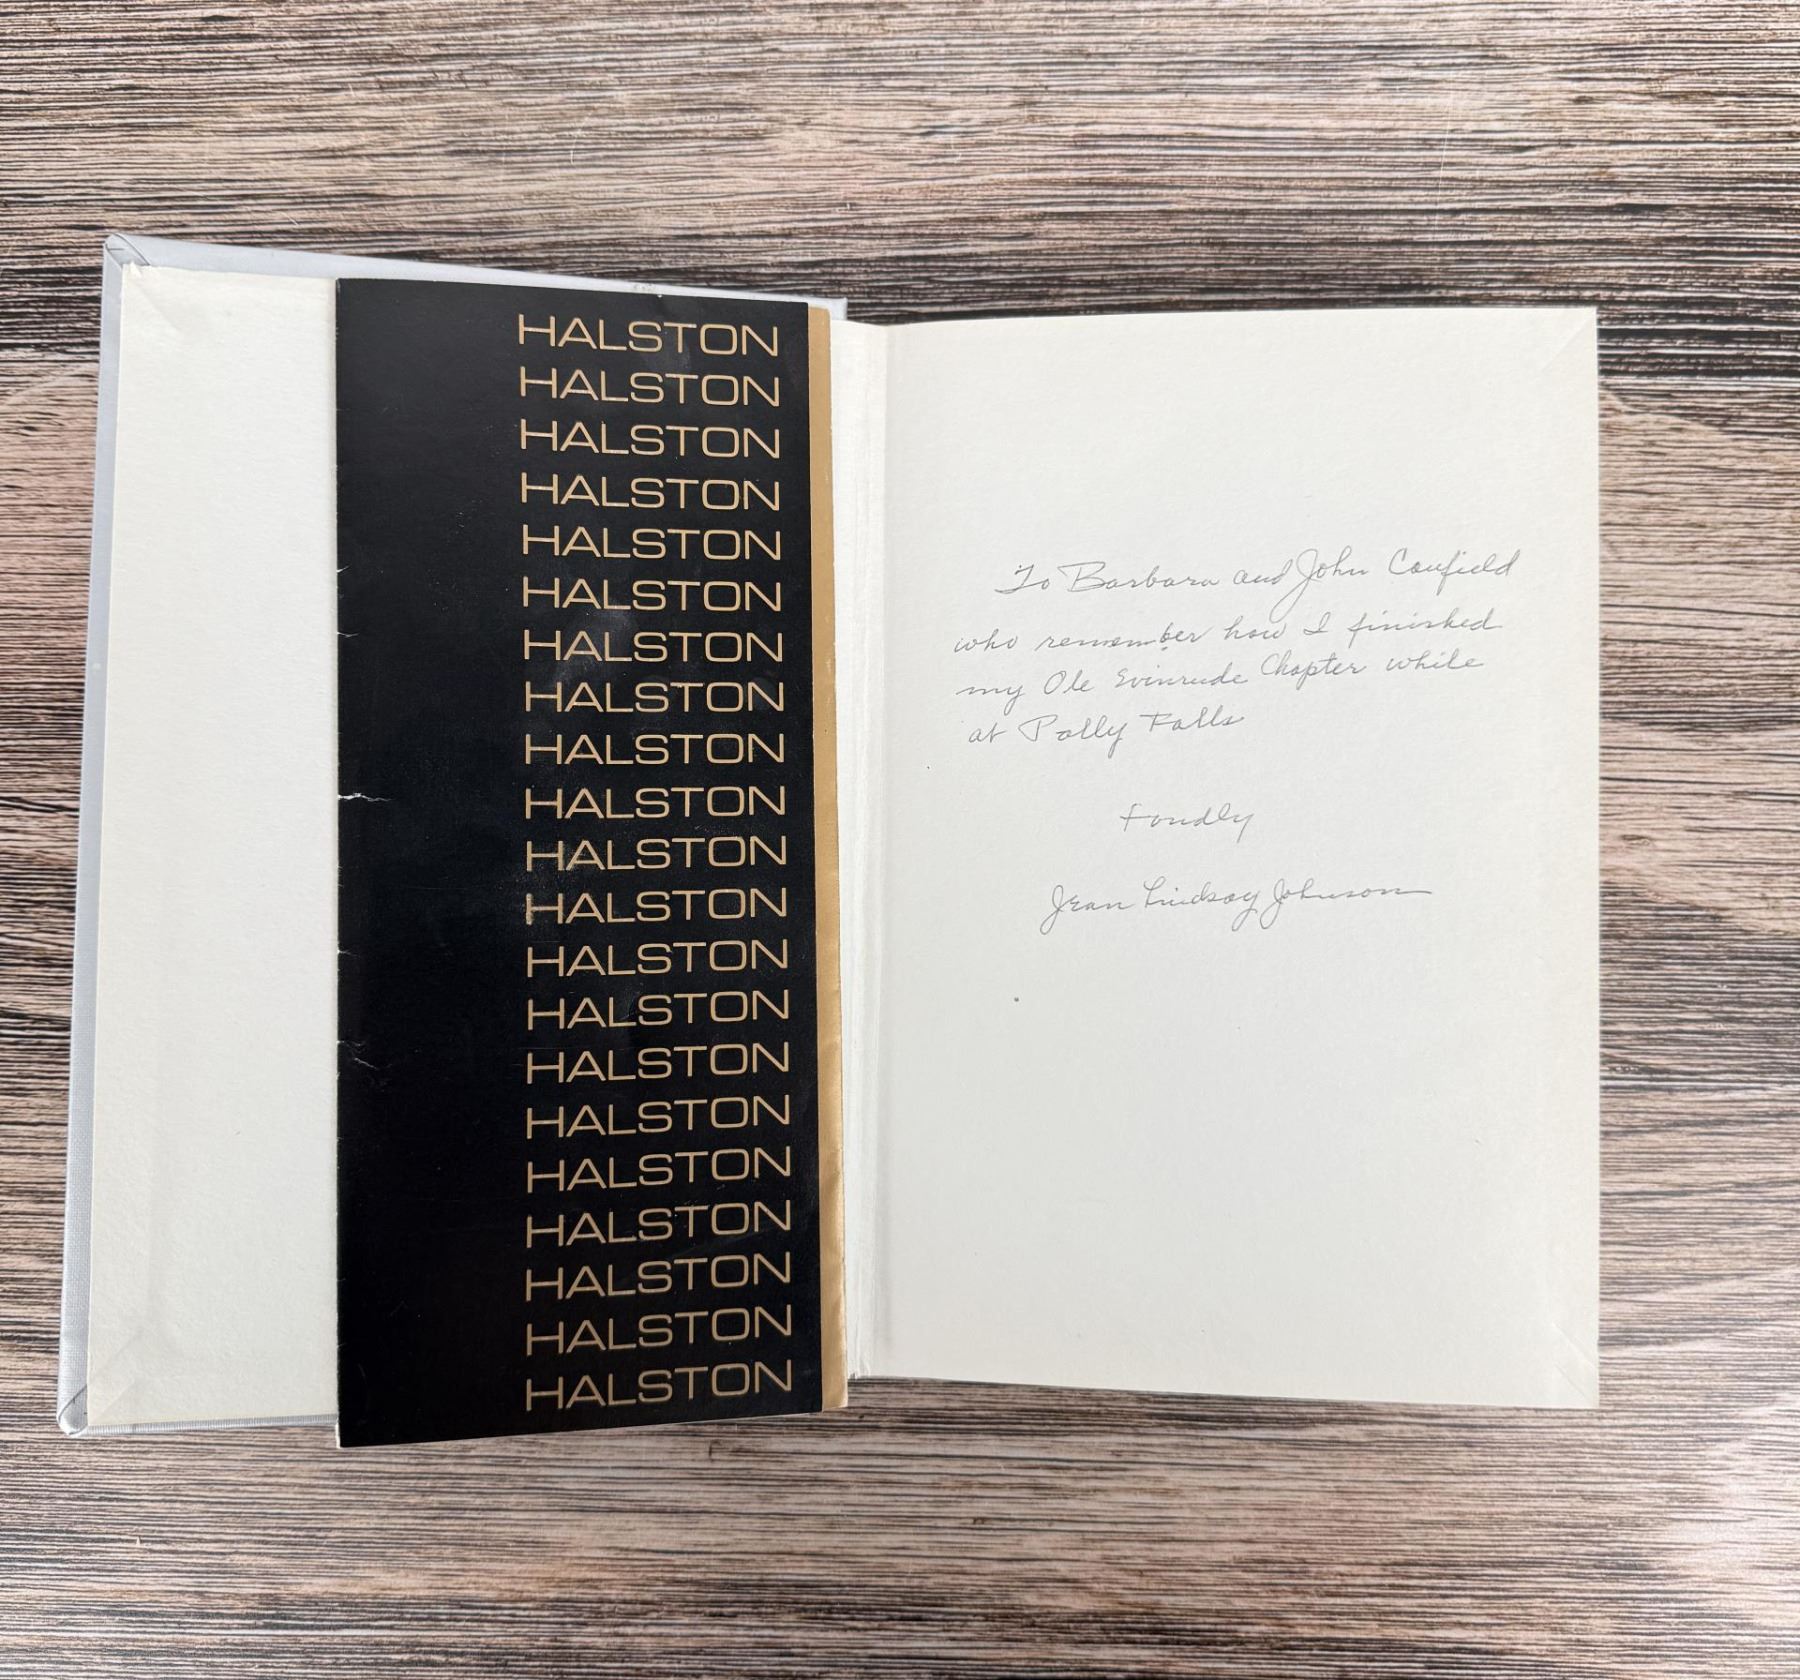 HALSTON
HALSTON
HALSTON
HALSTON
HALSTON
HALSTON
HALSTON
HALSTON
HALSTON
HALSTON
HALSTON
HALSTON
HALSTON
HALSTON
HALSTON
HALSTON
HALSTON
HALSTON
HALSTON
HALSTON
HALSTON
To Barbara and John
who remember how I finished
my Ole Evinrude Chapter while
at Polly Falls
Fondly
Jean Lindsay Johnson